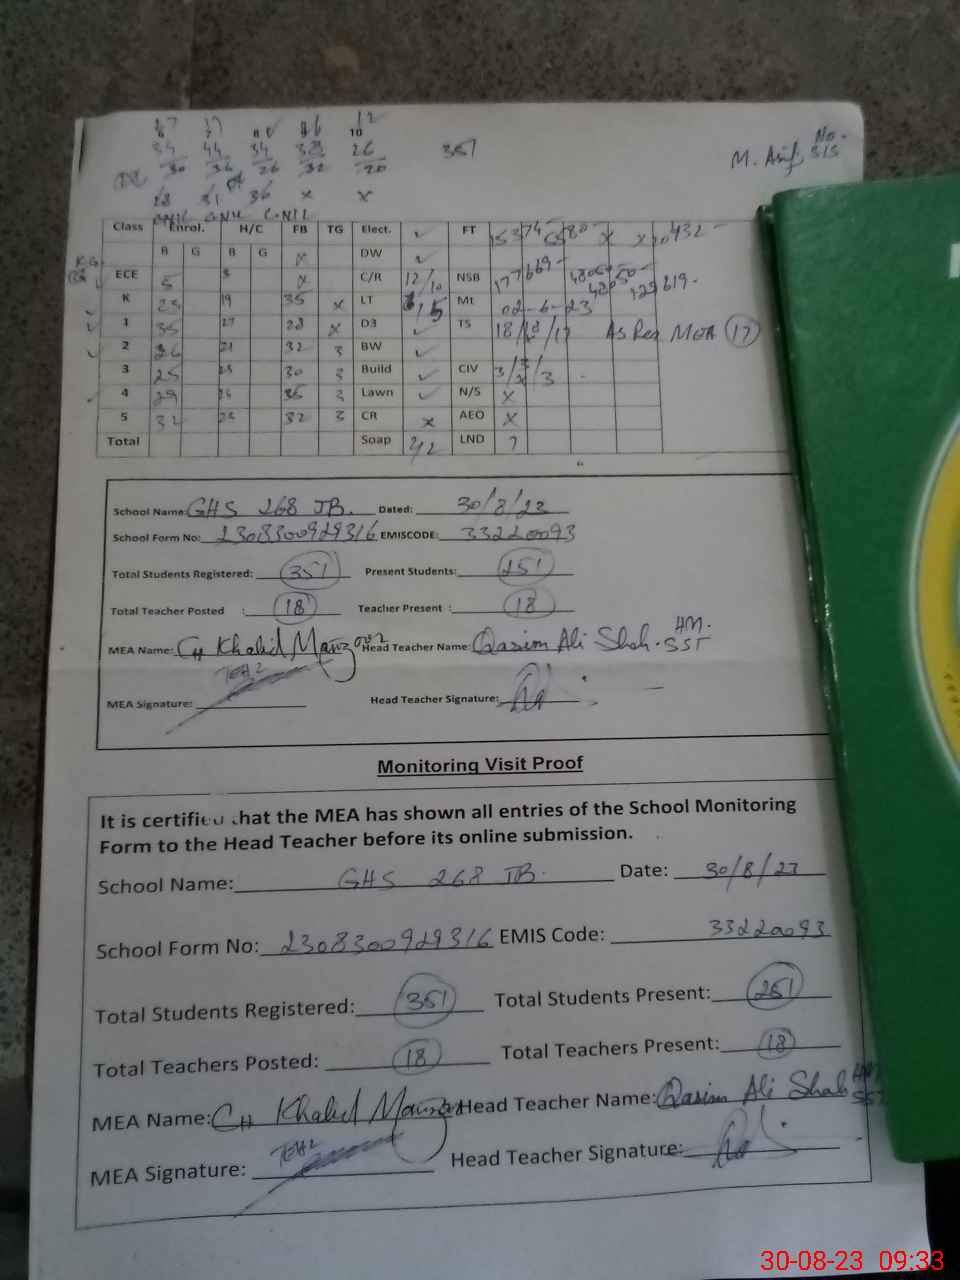 10
34 44 34 33 26 351
30 36 26 32 20
M. Asif
28 31 36 x x
Class Enrol. H/C FB TG Elect. ✓ FT
B G B G x DW ✓
ECE 5 x C/R 12/10 NSB
K 23 19 35 x LT 15 Mt 02-6-23
1 35 27 28 x D3 ✓ TS As Per MEA 17
2 26 21 32 3 BW ✓
3 25 30 3 Build ✓ CIV 3/x/3
4 29 35 3 Lawn ✓ N/S x
5 32 32 3 CR x AEO x
Total Soap LND
School Name: GHS 268 JB. Dated: 30/8/23
School Form No: 2308300929316 EMISCODE: 33220093
Total Students Registered: 351 Present Students: 251
Total Teacher Posted : 18 Teacher Present : 18
MEA Name: CH Khalid Manzoor Head Teacher Name: Qasim Ali Shah. HM. SST
MEA Signature: Head Teacher Signature:
Monitoring Visit Proof
It is certified that the MEA has shown all entries of the School Monitoring
Form to the Head Teacher before its online submission.
School Name: GHS 268 JB. Date: 30/8/23
School Form No: 2308300929316 EMIS Code: 33220093
Total Students Registered: 351 Total Students Present: 251
Total Teachers Posted: 18 Total Teachers Present: 18
MEA Name: CH Khalid Manzoor Head Teacher Name: Qasim Ali Shah HM SST
MEA Signature: Head Teacher Signature:
30-08-23 09:33